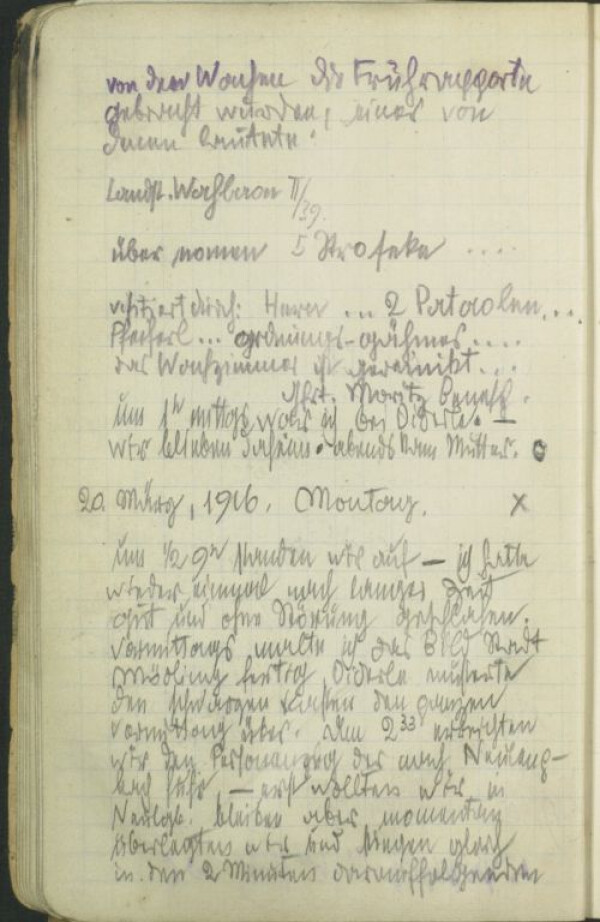 von den Wachen die Frührapporte
gebracht wurden, eines von
denen lautete:
Landst. Wachbaon II/39.
übernomen 5 Strofeke ....
visitiert durch: Herrn ... 2 Pataolen ...
Pfeiferl ... ordnungs-gähmes ....
das Wachzimmer ist gereinikt ...
Moritz
um 1h mittags war ich bei Diderle. —
wir blieben daheim. abends kam Mutter.
20. März, 1916. Montag. x
um ½ 9h standen wir auf — ich hatte
wieder einmal nach langer Zeit
gut und ohne Störung geschlafen.
vormittags malte ich das Bild Stadt
Mödling fertig, Diderle musterte
den schwarzen Kasten den ganzen
Vormittag über. Um 2 33 erreichten
wir den Personenzug der nach Neuleng-
bach fuhr, — erst wollten wir in
Neulgb. bleiben aber momentan
überlegten wir und stiegen gleich
in den 2 Minuten darauffolgenden